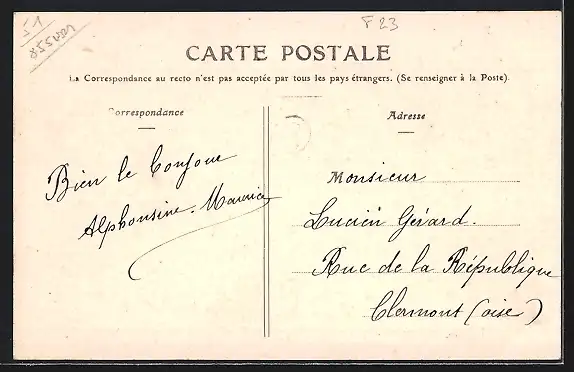 51
F 23
CARTE POSTALE
La Correspondance au recto n'est pas acceptée par tous les pays étrangers. (Se renseigner à la Poste).
Correspondance
Adresse
Bien le Conjoue
Alphonsine. Maurice
Monsieur
Lucien Gérard.
Rue de la République
Clermont (oise)